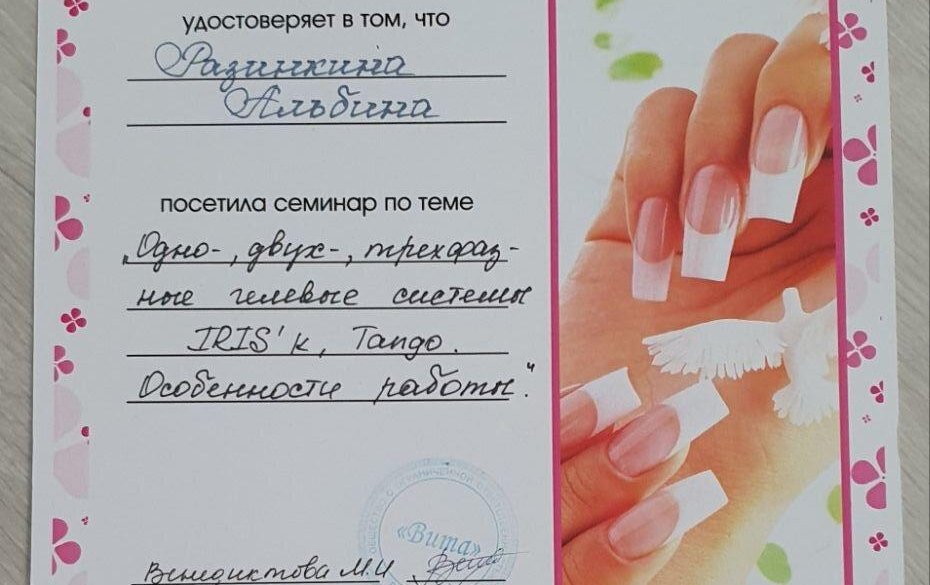 удостоверяет в том, что
Разинкина
Альбина
посетила семинар по теме
„Одно-, двух-, трехфаз-
ные гелевые системы
IRIS'к, Tango.
Особенности работы".
«Вита»
Венедиктова М.И